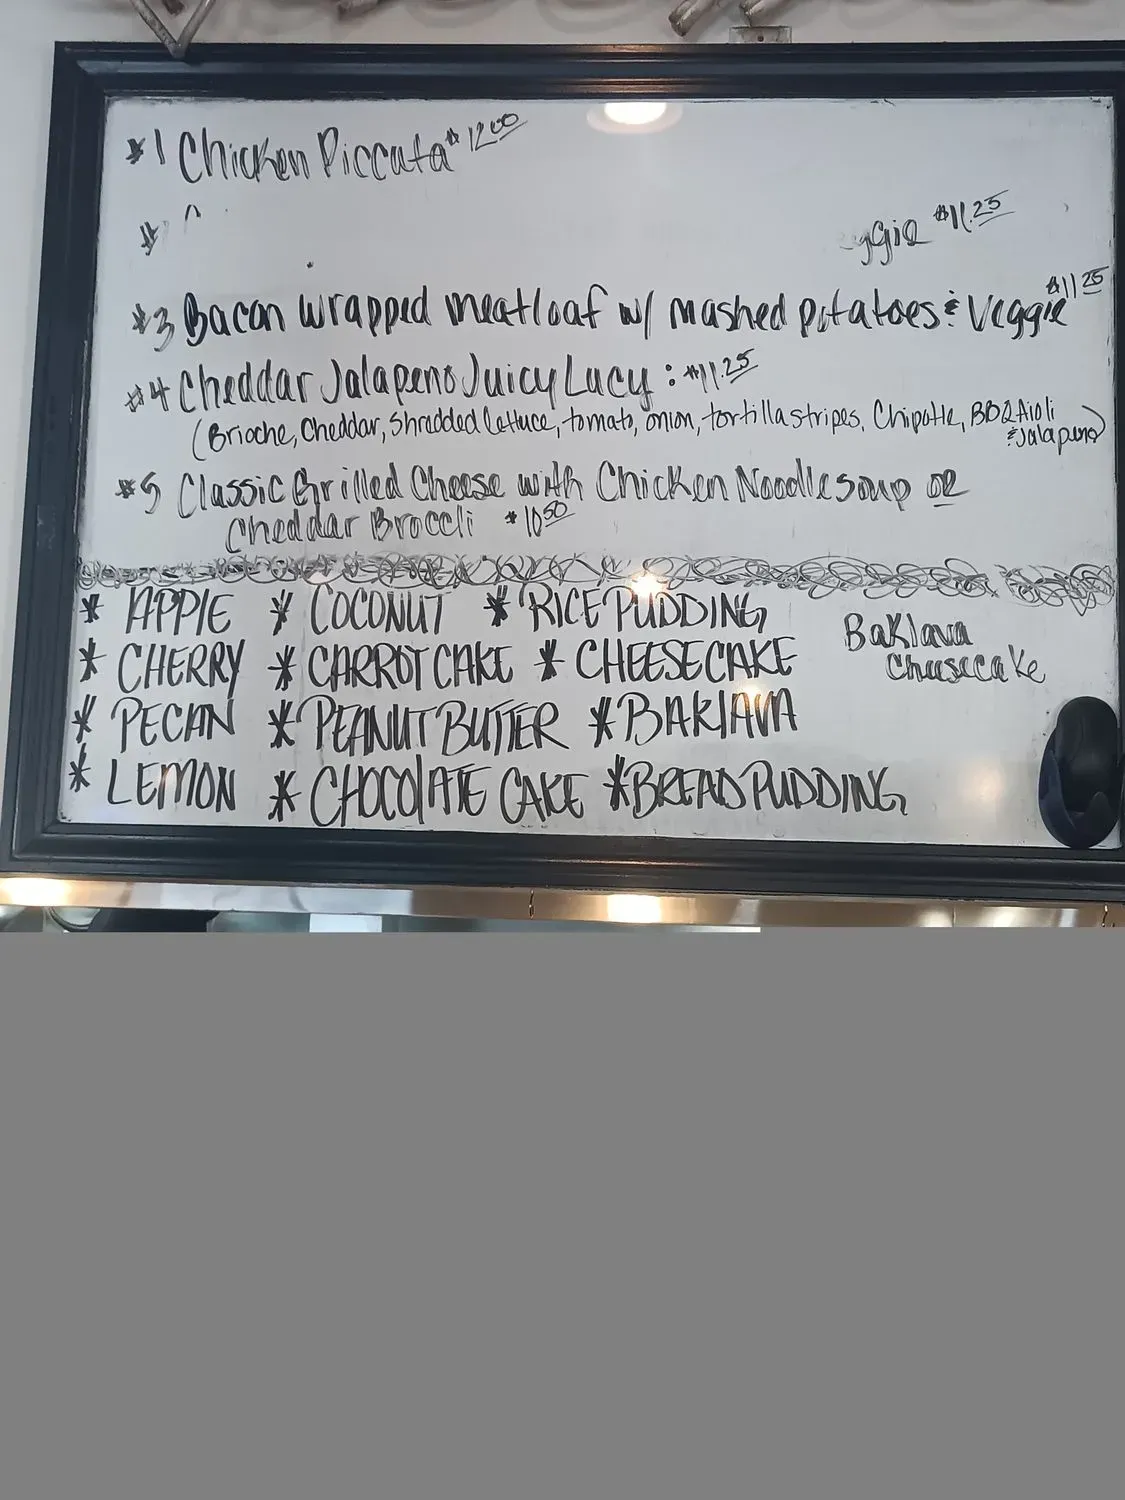 #1 Chicken Piccata $12.00
# $11.25
#3 Bacon wrapped meatloaf w/ mashed potatoes & Veggie $11.25
#4 Cheddar Jalapeno Juicy Lucy: $11.25
(Brioche, Cheddar, Shredded lettuce, tomato, onion, tortilla stripes, Chipotle, BBQ Aioli
& Jalapeno)
#5 Classic Grilled Cheese with Chicken Noodle soup OR
Cheddar Broccli $10.50
* APPLE * COCONUT * RICE PUDDING
* CHERRY * CARROT CAKE * CHEESECAKE
* PECAN * PEANUT BUTTER * BAKLAVA
* LEMON * CHOCOLATE CAKE * BREAD PUDDING
Baklava
Cheesecake